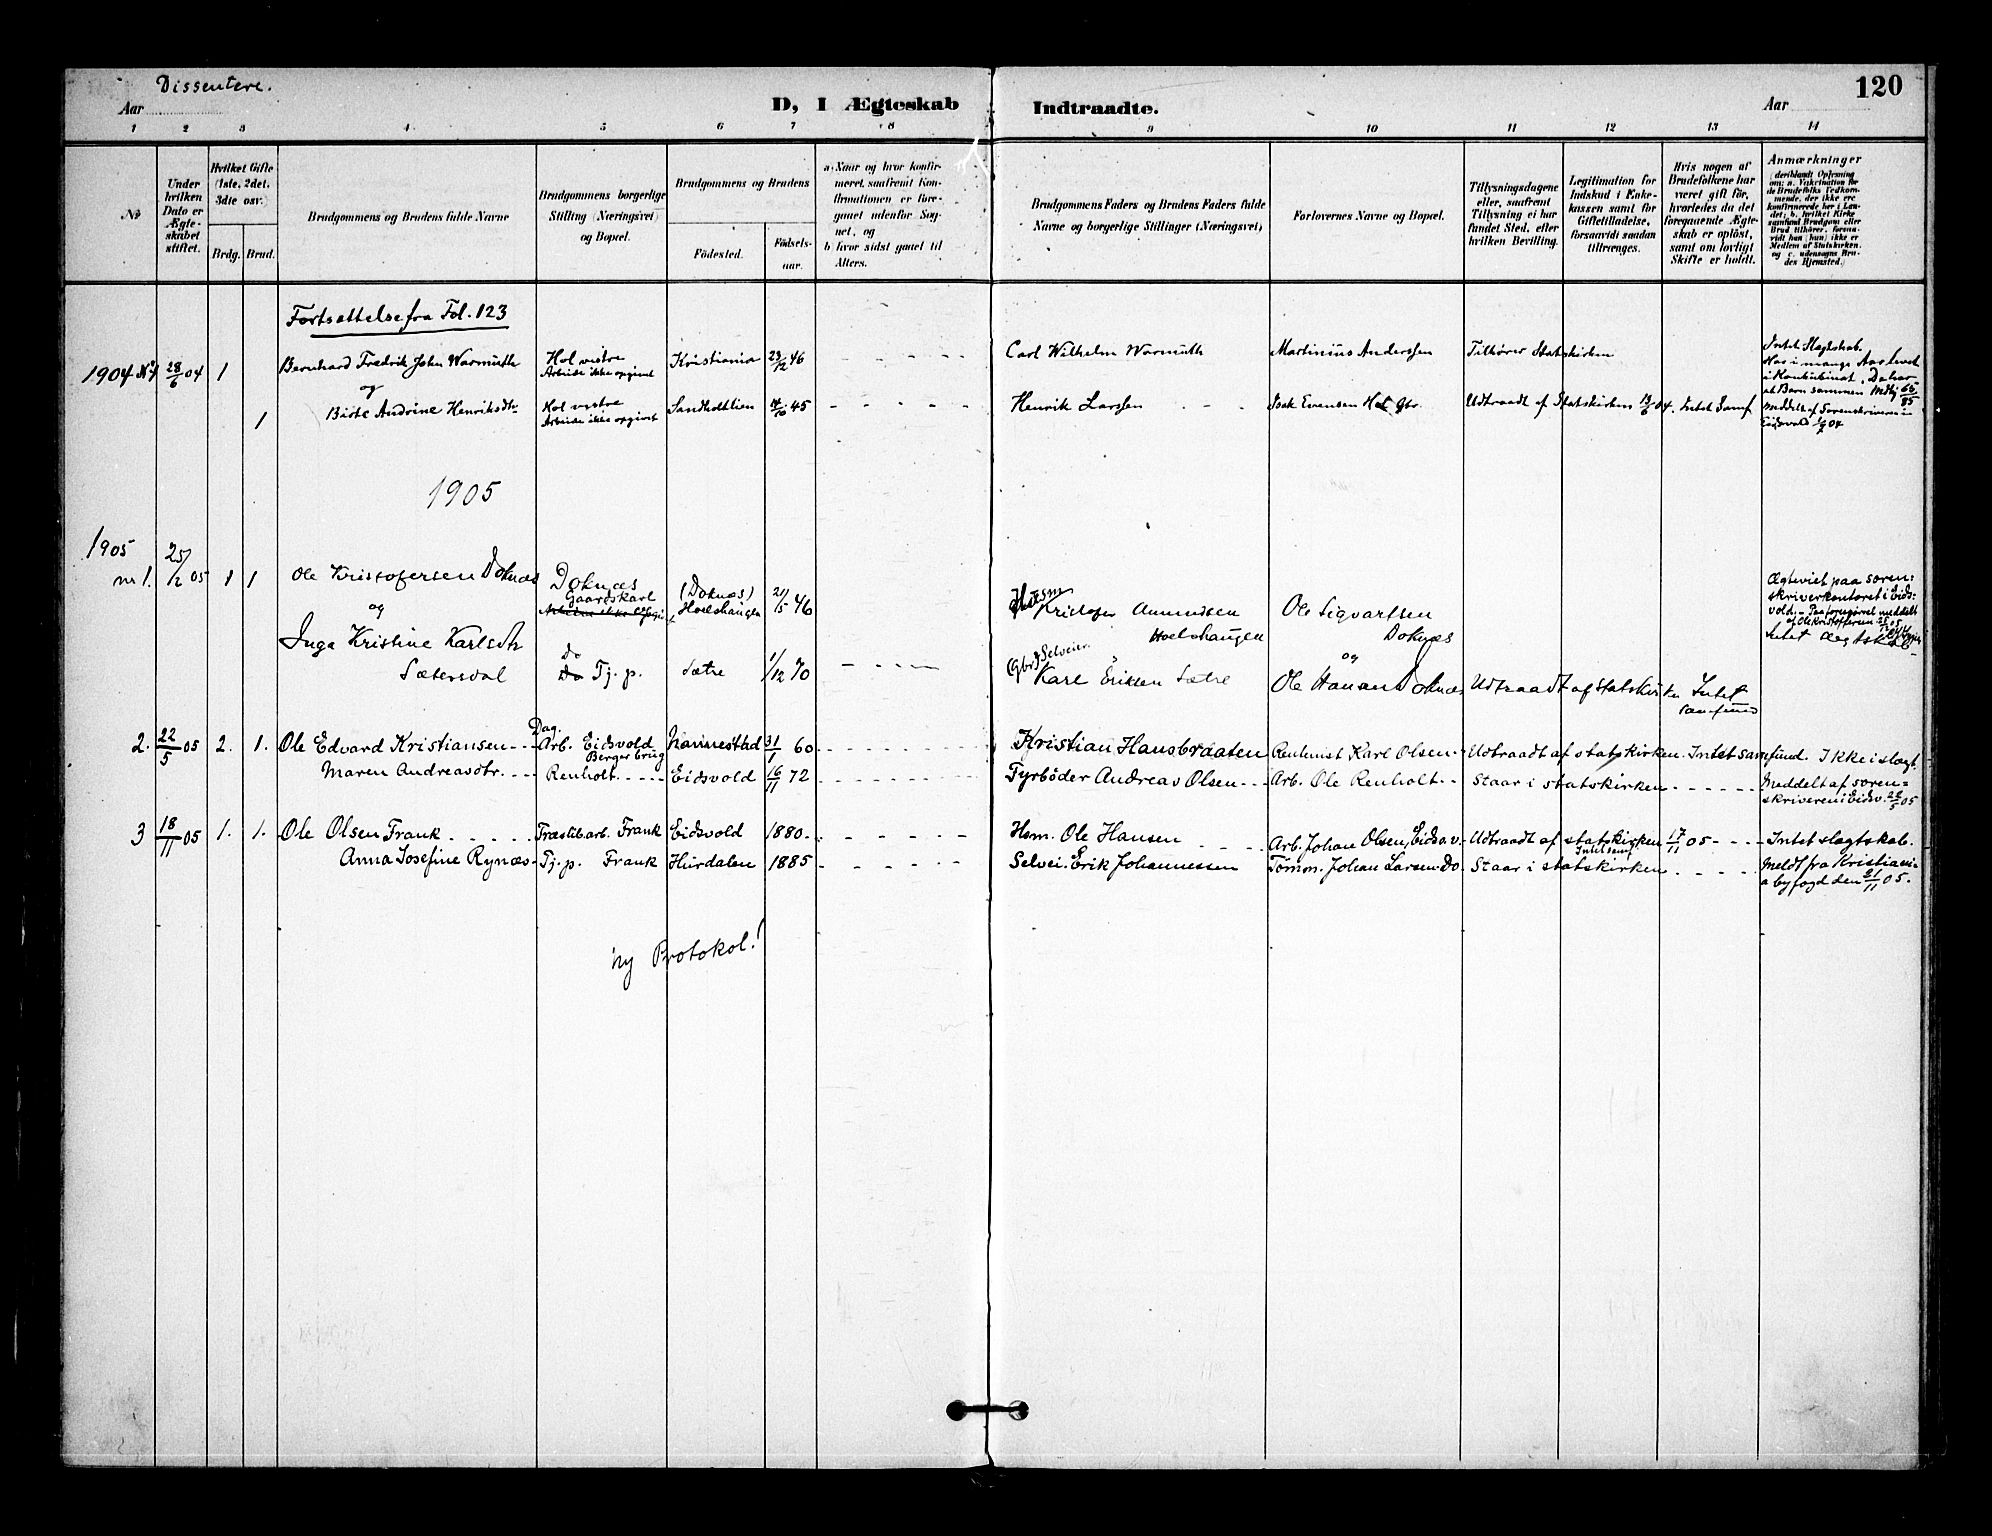 Dissentere.
Aar
D, I Ægteskab Indtraadte.
Aar
120
1 2 3 4 5 6 7 8 9 10 11 12 13 14
No
Under hvilken Dato er Ægteskabet stiftet.
Hvilket Gifte (1ste, 2det, 3die osv.)
Brdg. Brud.
Brudgommens og Brudens fulde Navne
Brudgommens borgerlige Stilling (Næringsvei) og Bopæl.
Brudgommens og Brudens
Fødested.
Fødselsaar.
a. Naar og hvor konfirmeret, saafremt Konfirmationen er foregaaet udenfor Sognet, og
b. hvor sidst gaaet til Alters.
Brudgommens Faders og Brudens Faders fulde Navne og borgerlige Stillinger (Næringsvei)
Forlovernes Navne og Bopæl.
Tillysningsdagene eller, saafremt Tillysning ei har fundet Sted, efter hvilken Bevilling.
Legitimation for Indskud i Enkekassen samt for Giftetilladelse, forsaavidt saadan tiltrænges.
Hvis nogen af Brudefolkene har været gift før, hvorledes da det foregaaende Ægteskab er opløst, samt om lovligt Skifte er holdt.
Anmærkninger
(deriblandt Oplysning om: a. Vakcination for de Brudefolks Vedkommende, der ikke ere konfirmerede her i Landet; b. hvilket Kirkesamfund Brudgom eller Brud tilhører, forsaavidt han (hun) ikke er Medlem af Statskirken, og c. udensogns Brudes Hjemsted.)
Fortsættelse fra Fol. 123
1904 No 4 28/6 04 1 Bernhard Fredrik John Warmuth Hol vestre Arbeide ikke opgivet Kristiania 23/12 46 - - - - - Carl Wilhelm Warmuth Martinius Anderssen Tilhører Statskirken
og
1 Birte Andrine Henriksdtr Hol vestre Arbeide ikke opgivet Sandholtlien 14/10 45 - - - - - Henrik Larssen - - Isak Evensen Hol Gbr. Udtraadt af Statskirken 13/6 04. Intet Samf
Intet Slegtskab.
Har i mange Aar levet
i Konkubinat. De har
et Barn sammen
Meddelt af Sorenskriveren i
Eidsvold 04
1905
1905
nr 1. 25/2 05 1 1 Ole Kristofersen Doknæs Doknæs Gaardskarl (Doknæs) Hoelshaugen 21/5 46 Husm Kristofer Amundsen Hoelshaugen Ole Sigvartsen Doknæs
og
Inga Kristine Karlsdtr Sætersdal Do Do Tj. p. Sætre 1/12 70 - - - (Gbr) Selveier. Karl Eriksen Sætre og Ole Hansen Doknæs Udtraadt af Statskirken Intet samfund
Ægteviet paa soren:
skriverkontoret i Eids:
vold. - Paaforegørrel meddelt
af Ole Kristoffersen
Intet Ægtskab
2. 22/5 05 2. 1. Ole Edvard Kristiansen - - - Dag. Arb. Eidsvold Berger brug Nannestad 31/1 60 - - - - - - Kristian Hansbraaten Renhust Karl Olsen - - Udtraadt af statskirken. Intet samfund. Ikke i slegt.
Maren Andreasdtr. - - - - Renholt - - - - Eidsvold 16/11 72 - - - - - - Fyrbøder Andreas Olsen - - - Arb. Ole Renholt - - Staar i statskirken - - - - - Meddelt af soren=
skriveren i Eidsv. 22/5 05
3 18/11 05 1. 1. Ole Olsen Frank - - - - - Træslib arb. Frank Eidsvold 1880 - - - - - - - Hsm. Ole Hansen - - - Arb. Johan Olsen, Eidsv. - Udtraadt af statskirken 17/11 05 - - - Intet slegtskab.
Intet samf
Anna Josefine Rynæs - Tj. p. Frank Hurdalen 1885 - - - - - - Selvei. Erik Johannessen Tømm. Johan Larsen Do. Staar i statskirken - - - - - Meldt fra Kristiani-
a byfogd den 21/11 05.
ny Protokol!